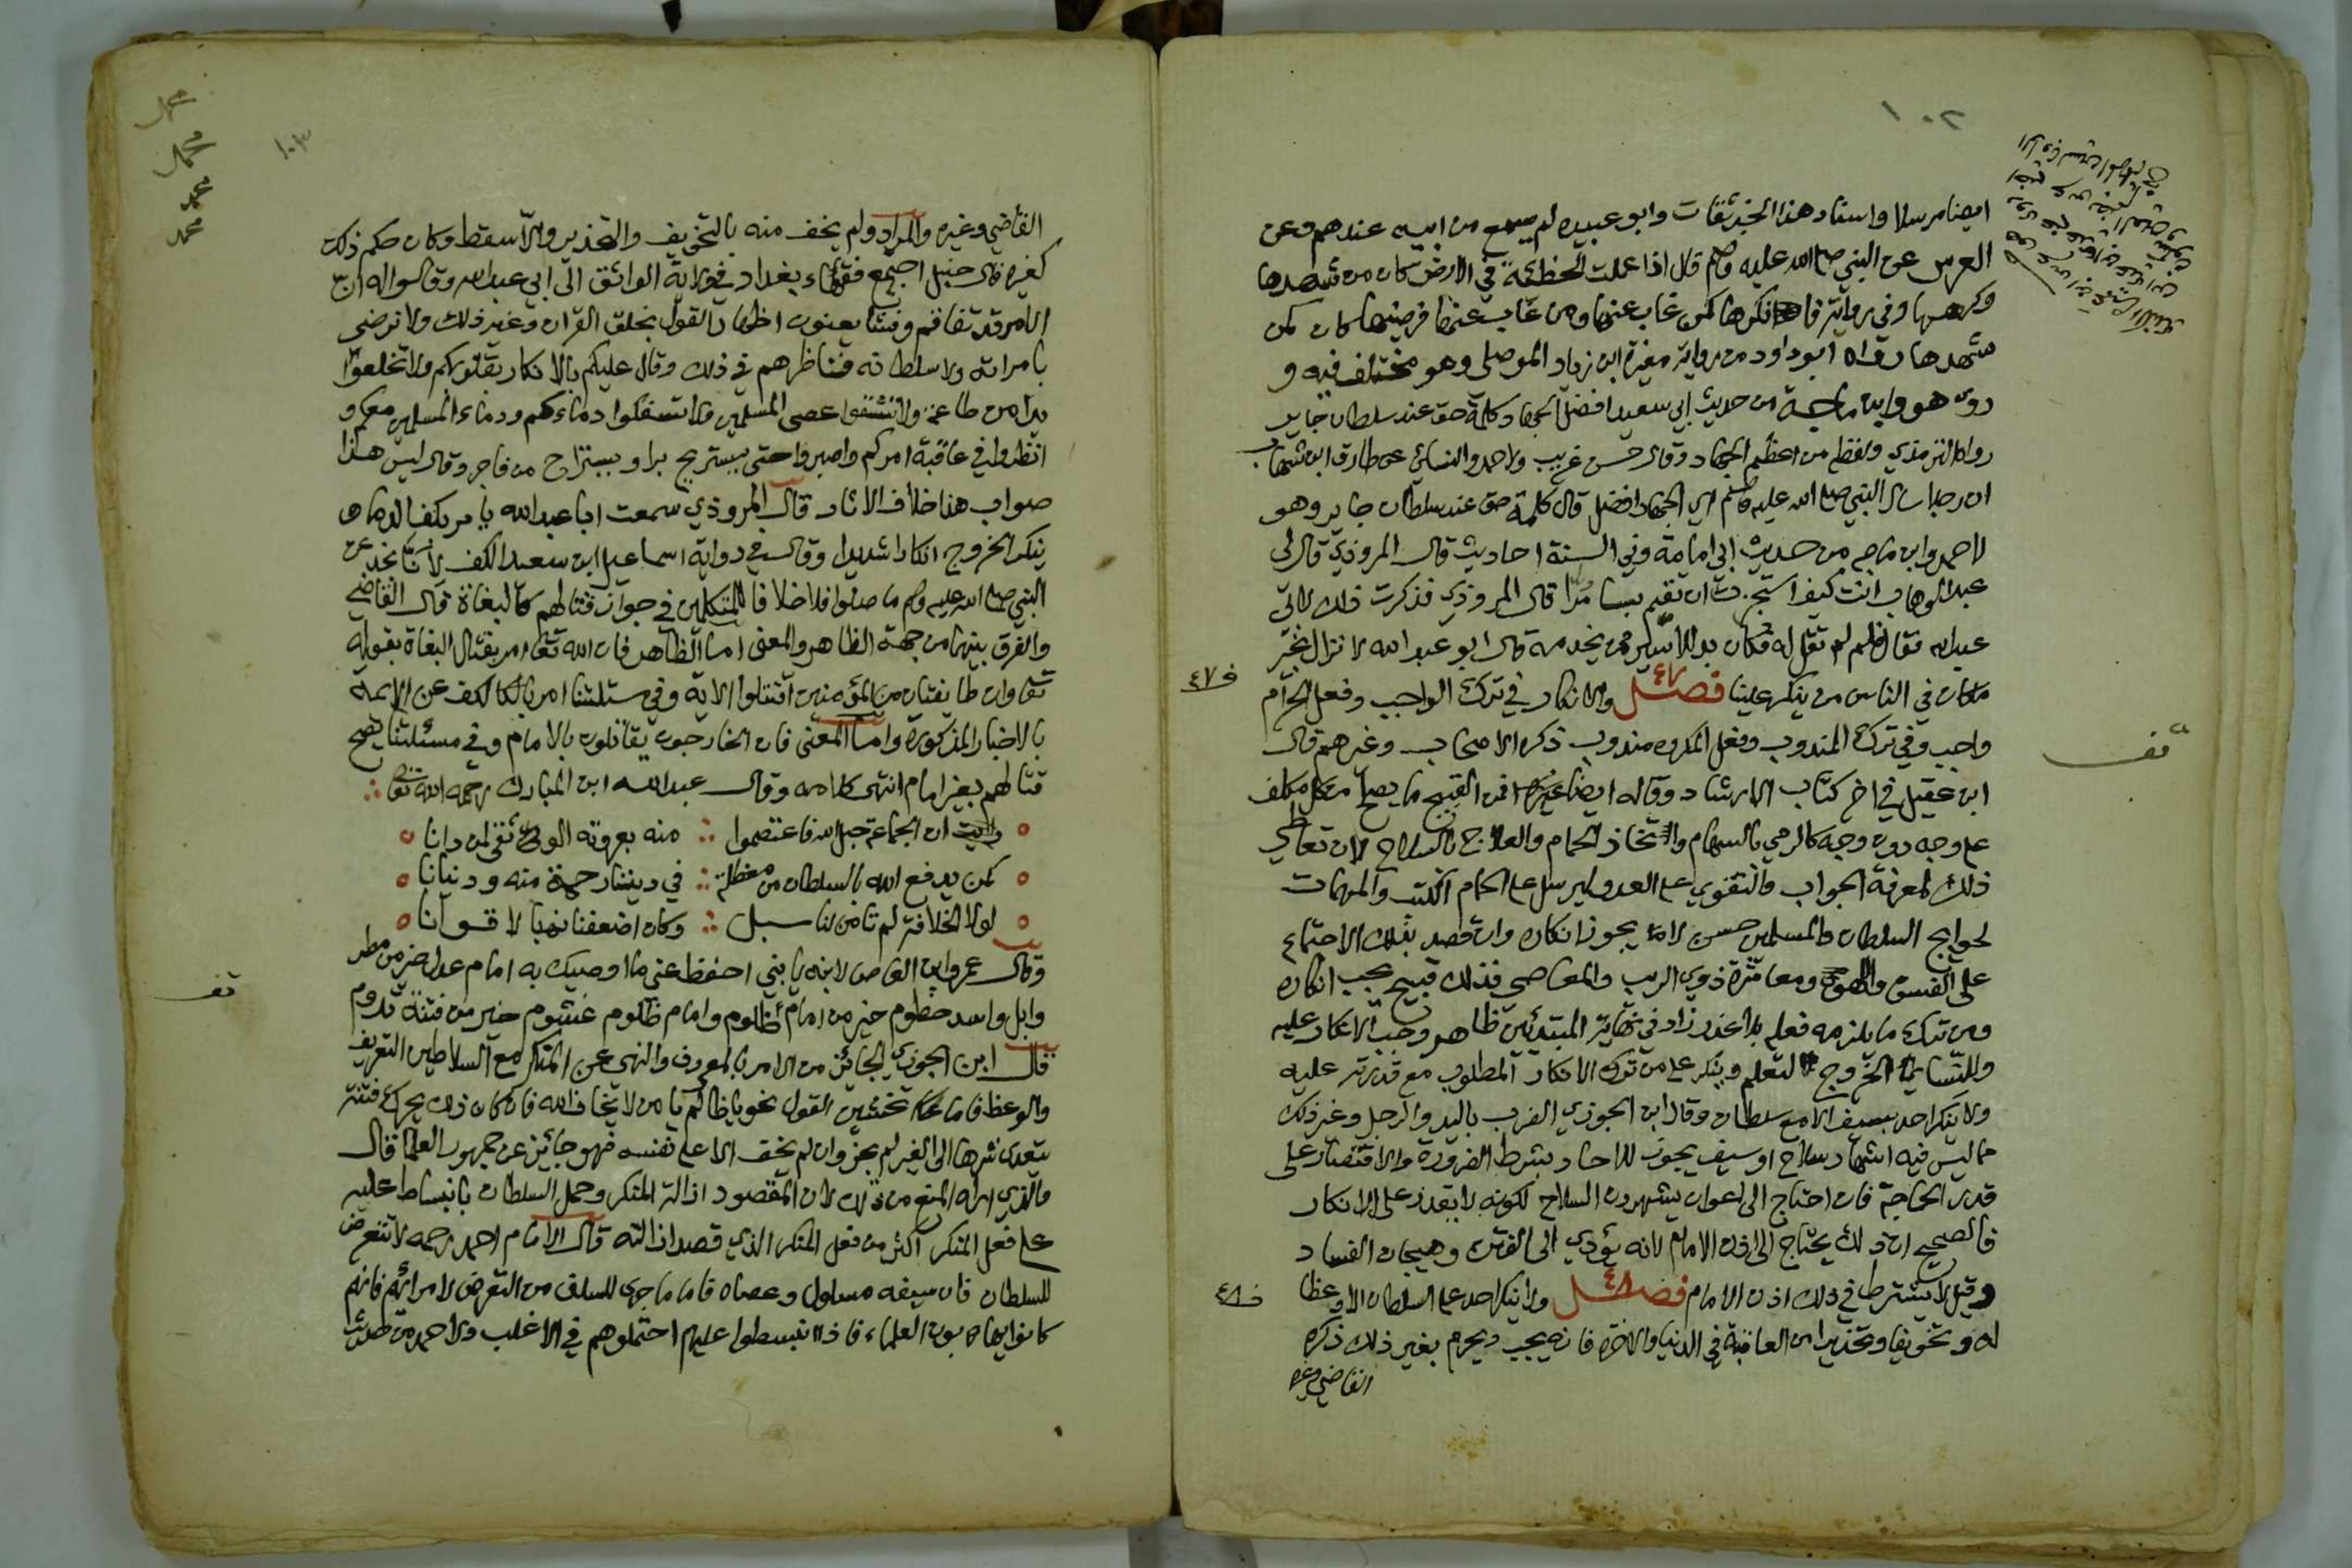 ١٠٢
ايضا مرسلا واسناد هذا الخبر ثقات وابو عبيده لم يسمع من ابيه عندهم وعن
العرس عن النبي صلى الله عليه وسلم قال اذا عملت الخطيئة في الارض كان من شهدها
وكرهها وفي رواية فانكرها كمن غاب عنها ومن غاب عنها فرضيها كان كمن
شهدها رواه ابو داود من رواية مغيرة ابن زياد الموصلي وهو مختلف فيه و
روى هو وابن ماجة من حديث ابي سعيد افضل الجهاد كلمة حق عند سلطان جاير
رواه الترمذي ولفظه من اعظم الجهاد وقال حسن غريب ولاحمد والنسائي عن طارق ابن شهاب
ان رجلا سال النبي صلى الله عليه وسلم اي الجهاد افضل قال كلمة حق عند سلطان جاير وهو
لاحمد وابن ماجه من حديث ابي امامة وفي السنة احاديث قال المروذي قال لي
عبد الوهاب انت كيف استجزت ان تقيم بسامرا قال المروذي فذكرت ذلك لابي
عبد الله فقال فلم لم تقل له فكان بد للاسير من يخدمه قال ابو عبد الله لا نزال بخير
ما كان في الناس من ينكر علينا فصل والانكار في ترك الواجب وفعل الحرام
ف ٤٧
واجب وفي ترك المندوب وفعل المكروه مندوب ذكره الاصحاب وغيرهم قال
قف
ابن عقيل في اخر كتاب الارشاد وقاله ايضا غيره فمن القبيح ما يصح من كل مكلف
على وجه دون وجه كالرمي بالسهام واتخاذ الحمام والعلاج بالسلاح لان تعاطي
ذلك لمعرفة الجواب والتقوي على العدو ليرسل على الحمام الكتب والمهمات
لحوايج السلطان والمسلمين حسن لا يجوز انكاره وان قصد بذلك الاجتماع
على الفسق واللهو ومعاشرة ذوي الريب والمعاصي فذلك قبيح يجب انكاره
ومن ترك ما يلزمه فعله بلا عذر زاد في نهاية المبتدئين ظاهر وجب الانكار عليه
وللنسا الخروج للتعلم وينكر على من ترك الانكار المطلوب مع قدرته عليه
ولا ينكر احد بسيف الا مع سلطان وقال ابن الجوزي الضرب باليد والرجل وغير ذلك
مما ليس فيه اشهار سلاح او سيف يجوز للاحاد بشرط الضرورة والاقتصار على
قدر الحاجة فان احتاج الى اعوان يشهرون السلاح لكونه لا يقدر على الانكار
فالصحيح ان ذلك يحتاج الى اذن الامام لانه يؤدي الى الفتن وهيجان الفساد
وقيل لا يشترط في ذلك اذن الامام فصل ولا ينكر احد على السلطان الا وعظا
ف ٤٨
له وتخويفا وتحذيرا من العاقبة في الدنيا والاخرة فانه يجب ويحرم بغير ذلك ذكره
القاضي وغيره
١٠٣
محمد
محمد
محمد
محمد
القاضي وغيره والمراد ولم يخف منه بالتخويف والتحذير والا سقط وكان حكم ذلك
كغيره قال حنبل اجتمع فقهاء بغداد في ولاية الواثق الى ابي عبد الله وقالوا له ان
الامر قد تفاقم وفشا يعنون اظهار القول بخلق القرآن وغير ذلك ولا نرضى
بامراته ولا سلطانه فناظرهم في ذلك وقال عليكم بالانكار بقلوبكم ولا تخلعوا
يدا من طاعة ولا تشقوا عصى المسلمين ولا تسفكوا دماءكم ودماء المسلمين معكم و
انظروا في عاقبة امركم واصبروا حتى يستريح برا و يستراح من فاجر وقال ليس هذا
صواب هذا خلاف الاثار قال المروذي سمعت ابا عبد الله يامر بكف الدماء و
ينكر الخروج انكارا شديدا وقال في رواية اسماعيل ابن سعيد الكف لانا نجد عن
النبي صلى الله عليه وسلم ما صلوا فلا خلافا للمتكلمين في جواز قتالهم كالبغاة قال القاضي
والفرق بينهما من جهة الظاهر والمعنى اما الظاهر فان الله تعالى امر بقتال البغاة بقوله
تعالى وان طايفتان من المؤمنين اقتتلوا الاية وفي مسئلتنا امر بالكف عن الايمة
بالاخبار المذكورة واما المعنى فان الخارجون يقاتلون بالامام وفي مسئلتنا يصح
قتالهم بغير امام انتهى كلامه وقال عبد الله ابن المبارك رحمه الله تعالى
ان الجماعة حبل الله فاعتصموا ∴ منه بعروته الوثقى لمن دانا
كمن يدفع الله بالسلطان من معظلة ∴ في ديننا رحمة منه ودنيانا
لولا الخلافة لم تامن لنا سبل ∴ وكان اضعفنا نهبا لاقوانا
وقال عمرو ابن العاص لابنه يا بني احفظ عني ما اوصيك به امام عدل خير من مطر
وابل واسد خطوم خير من امام ظلوم وامام ظلوم غشوم خير من فتنة تدوم
قف
قال ابن الجوزي الجائز من الامر بالمعروف والنهى عن المنكر مع السلاطين التعريف
والوعظ فاما تخشين القول نحو يا ظالم يا من لا يخاف الله فان كان ذلك يحرك فتنة
يتعدى شرها الى الغير لم يجز وان لم يخف الا على نفسه فهو جائز عن جمهور العلما قال
والذي اراه المنع من ذلك لان المقصود ازالة المنكر وحمل السلطان بالانبساط عليه
على فعل المنكر اكثر من فعل المنكر الذي قصد ازالته قال الامام احمد رحمه لا تتعرض
للسلطان فان سيفه مسلول وعصاه فاما ما جرى للسلف من التعرض لامرائهم فانهم
كانوا يهابون العلماء فاذا انبسطوا عليهم احتملوهم في الاغلب ولاحمد من حديث